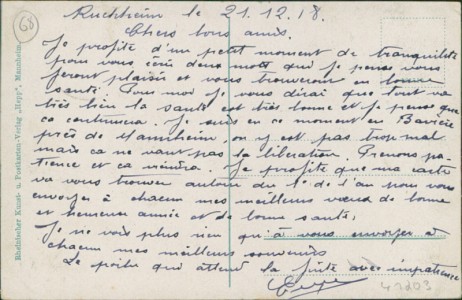 68
Ruchheim le 21.12.18.
Chers bons amis.
Je profite d'un petit moment de tranquilité
pour vous écrire deux mots qui je pense vous
feront plaisir et vous trouveront en bonne
santé. Pour moi je vous dirai que tout va
très bien la santé est très bonne et je pense que
ça continuera. Je suis en ce moment en Bavière
près de Mannheim, on y est pas trop mal
mais ça ne vaut pas la libération. Prenons pa-
tience et ça viendra. Je profite que ma carte
va vous trouver autour du 1er de l'an pour vous
envoyer à chacun mes meilleurs vœux de bonne
et heureuse année et de bonne santé.
Je ne vois plus rien qu'à vous envoyer à
chacun mes meilleurs souvenirs
Le poilu qui attend la fuite avec impatience
Rheinischer Kunst- u. Postkarten-Verlag „Hepp", Mannheim.